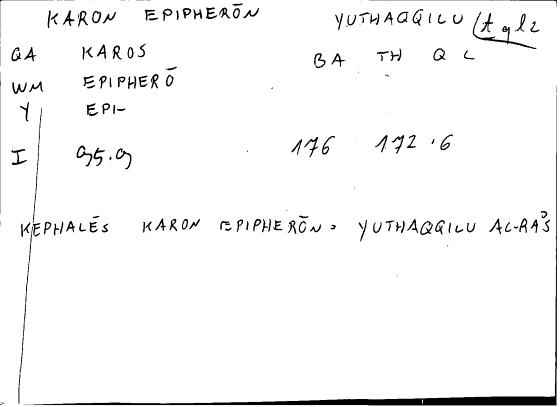 KARON EPIPHERŌN YUTHAQQILU (tql2
QA KAROS BA TH Q L
WM EPIPHERŌ
Y EPI-
I 95.9 176 172.6
KEPHALĒS KARON EPIPHERŌN = YUTHAQQILU AL-RA'S